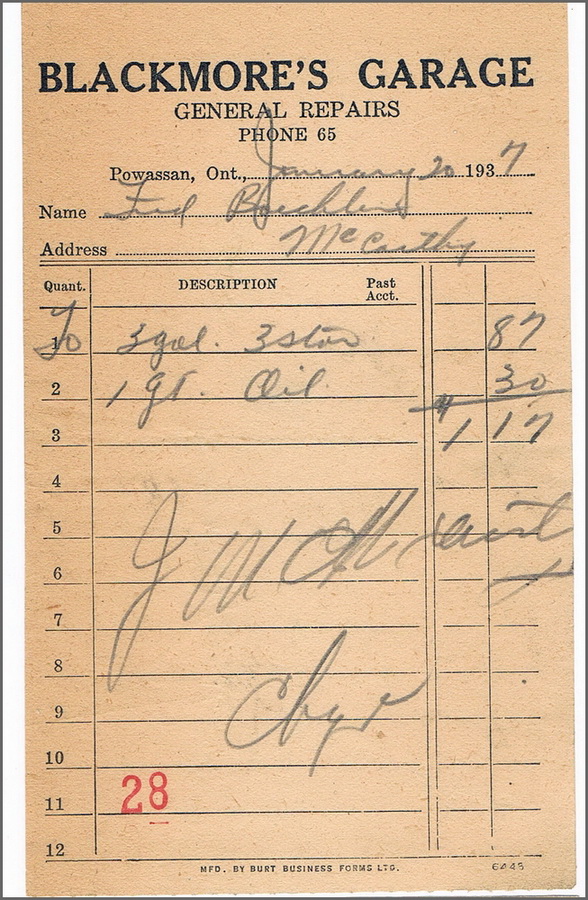 BLACKMORE'S GARAGE
GENERAL REPAIRS
PHONE 65
Powassan, Ont., January 20 1937
Name Fred
Address McCarthy
Quant. DESCRIPTION Past Acct.
1 3 gal. 3 star 87
2 1 qt. Oil 30
3 $1 17
4
5
6
7
8
9
10
11 28
12
MFD. BY BURT BUSINESS FORMS LTD. 6448